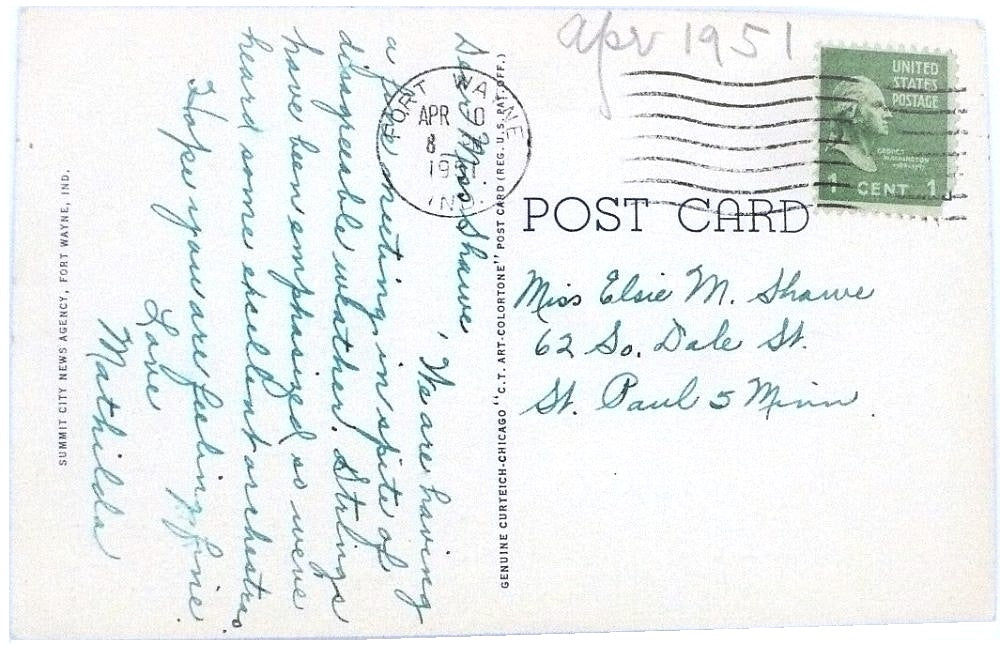 Apr 1951
UNITED
STATES
POSTAGE
GEORGE
WASHINGTON
1 CENT 1
FORT WAYNE
APR 10
8
1951
IND.
POST CARD
Miss Elsie M. Shawe
62 So. Dale St.
St. Paul 5 Minn.
Dear Miss Shawe,
We are having
a fine meeting in spite of
disagreeable weather. Strings
have been emphasized so we've
heard some excellent orchestras.
Hope you are feeling fine.
Love
Mathilda
GENUINE CURTEICH-CHICAGO "C.T. ART-COLORTONE" POST CARD (REG. U.S. PAT. OFF.)
SUMMIT CITY NEWS AGENCY, FORT WAYNE, IND.